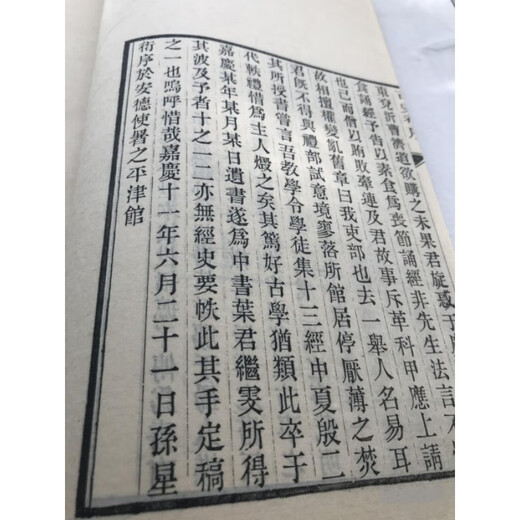 東兗沂曹濟道欲購之未果君旋歿于
食誦經予告以素食爲喪節誦經非先生法言不
也已而會以賕敗牽連及君故事斥革科甲應上請
故相擅權變亂舊章曰我吏部也去一舉人名易耳
君旣不得與禮部試意境寥落所館居停厭薄之焚
其所授書嘗言吾教學令學徒集十三經中夏殷二
代軼禮惜爲主人燬之矣其篤好古學猶類此卒于
嘉慶某年某月某日遺書遂爲中書葉君繼雯所得
其波及予者十之一二亦無經史要帙此其手定稿
之一也嗚呼惜哉嘉慶十一年六月二十一日孫星
衍序於安德使署之平津館